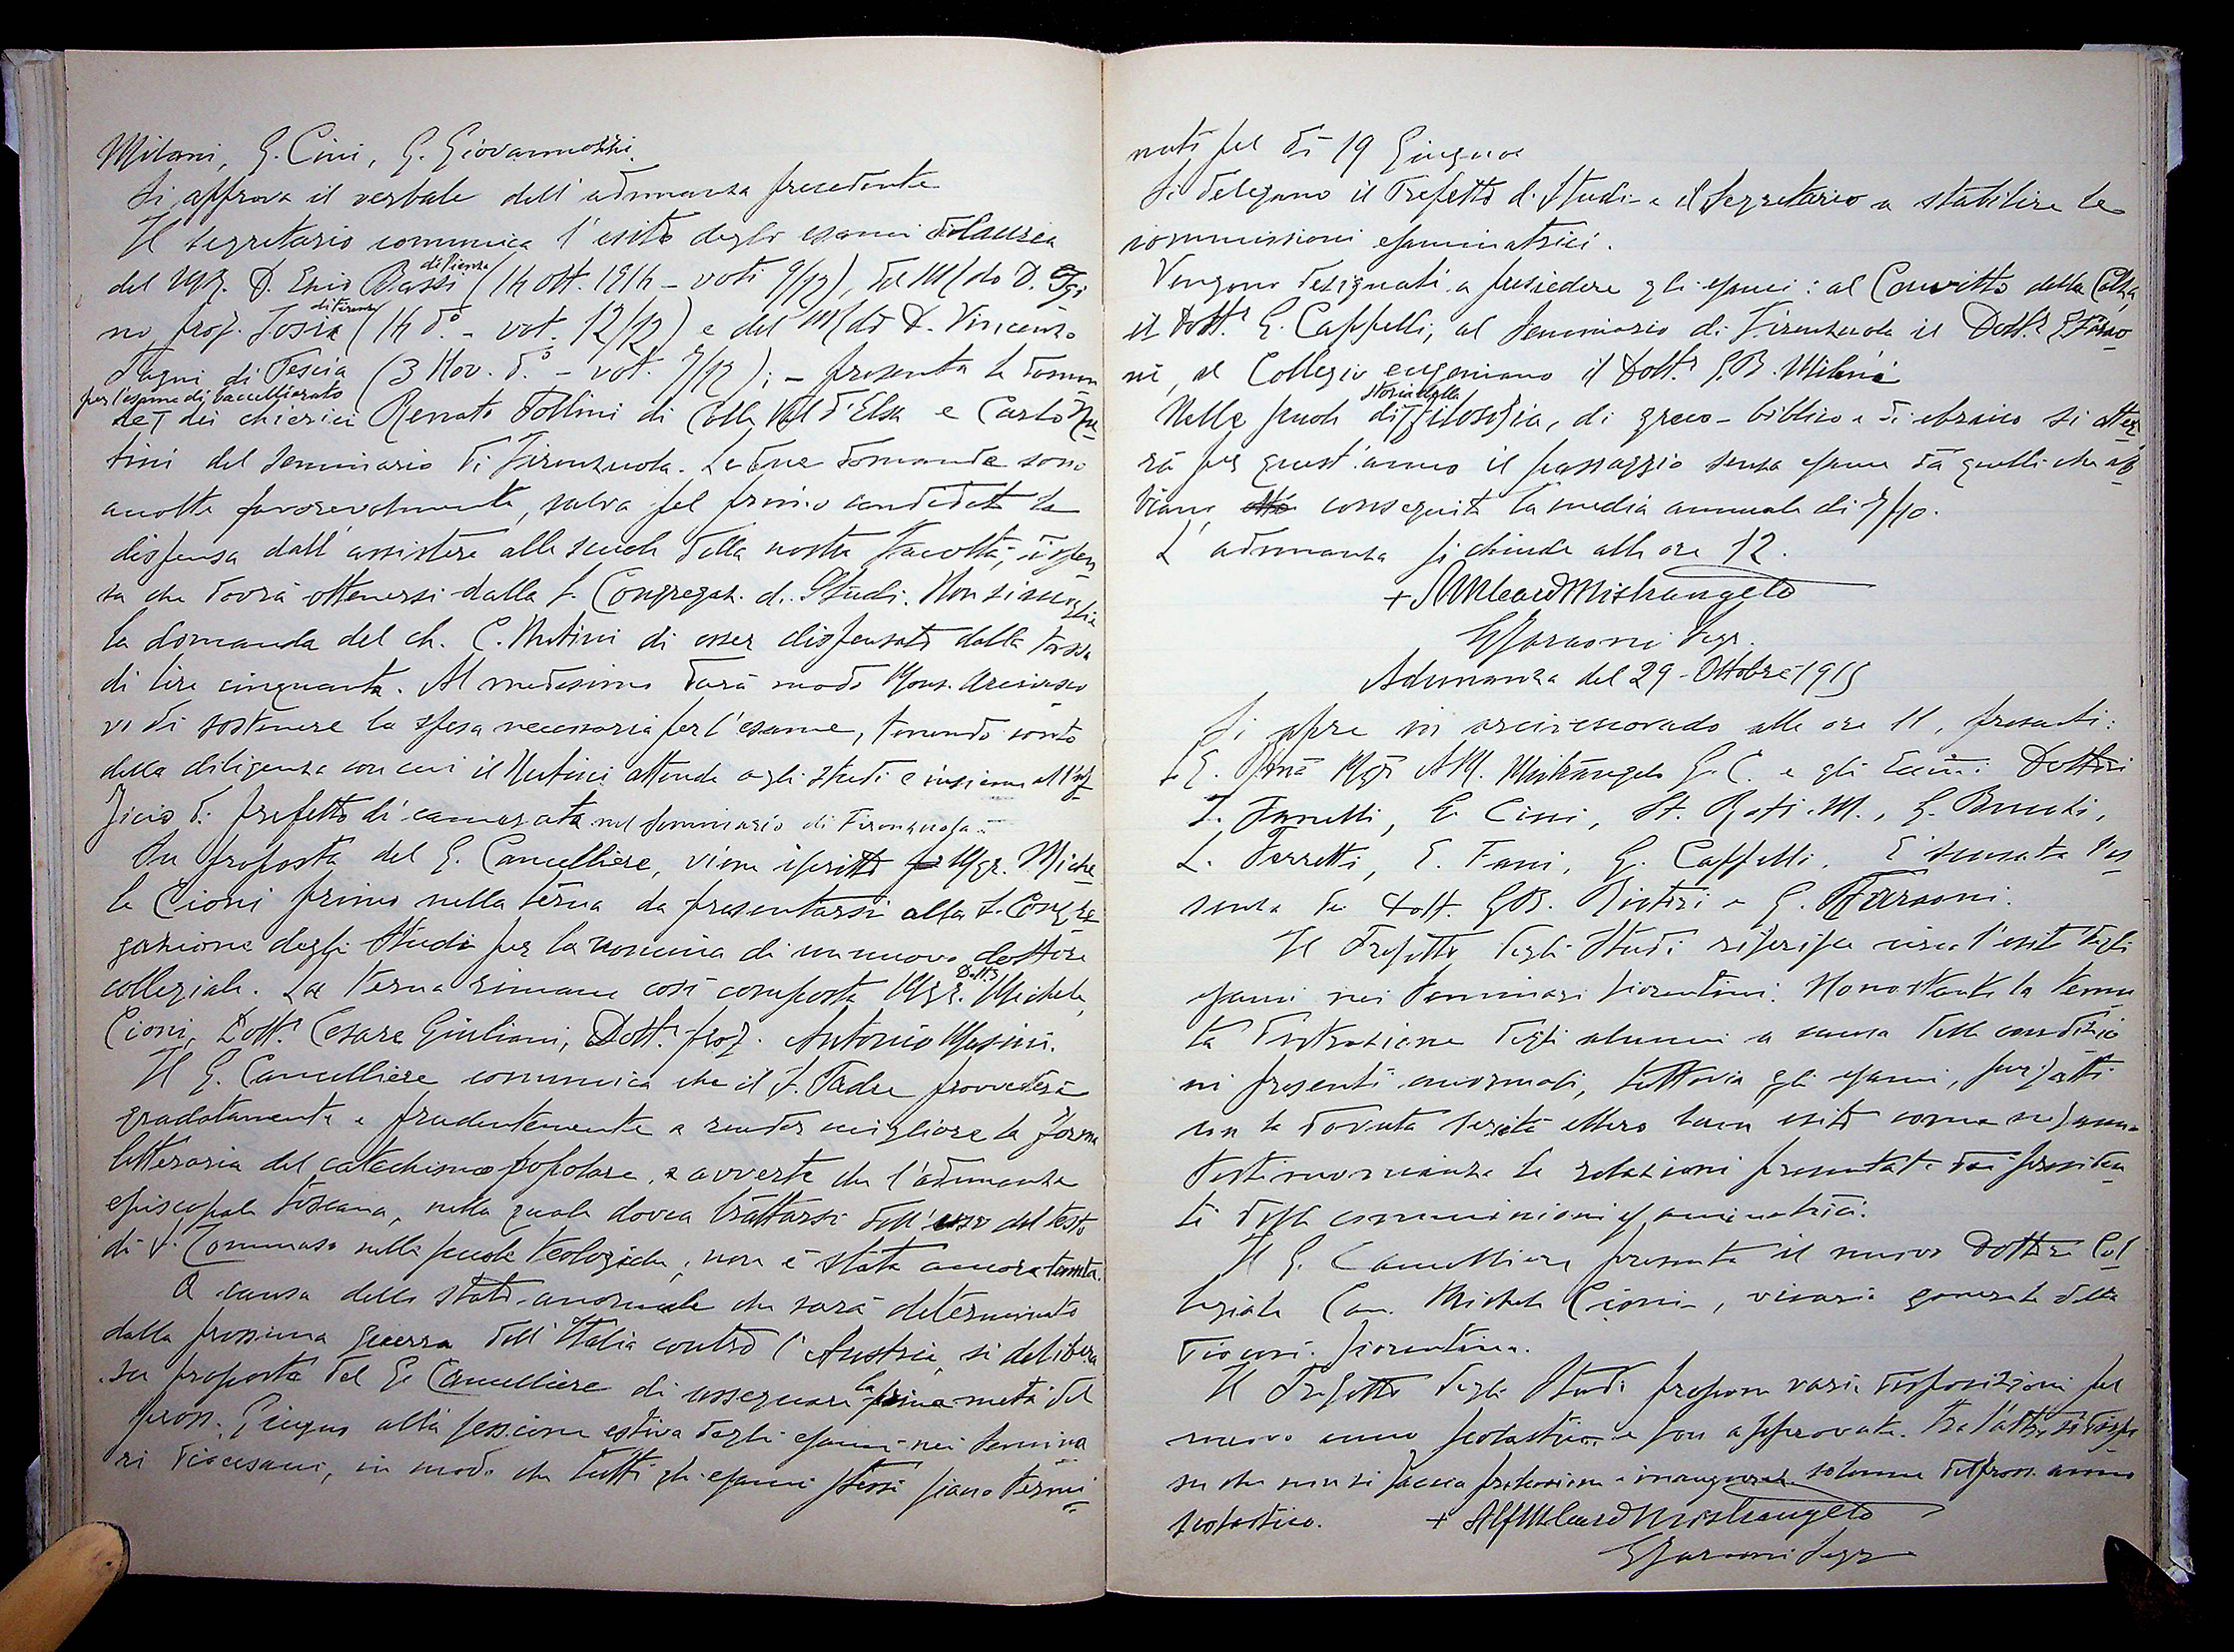 Milani, G. Cini, G. Giovannozzi.
Si approva il verbale dell'adunanza precedente
Il segretario comunica l'esito degli esami di laurea
del M. R. D. Enio Bassi di Pienza (14 Ott. 1914 - voti 9/12), del M(to D. Igi
no prof. Tosia di Firenze (14 do. - vot. 12/12) e del M(to D. Vincenzo
Tagni di Pescia (3 Nov. do - vot. 7/12); - presenta le doman
de per l'esame di baccelliarato dei chierici Renato Follini di Colle Val d'Elsa e Carlo Mu-
tini del Seminario di Firenzuola. Le due domande sono
accolte favorevolmente, salva pel primo candidato la
dispensa dall'assistere alle scuole della nostra Facoltà; dispen
sa che dovrà ottenersi dalla S. Congregaz. d. Studi. Non si accoglie
la domanda del ch. C. Mutini di esser dispensato dalla tassa
di lire cinquanta. Al medesimo darà modo Mons. Arcivesco
vo di sostenere la spesa necessaria per l'esame, tenendo conto
della diligenza con cui il Mutini attende agli studi e insieme all'uf-
ficio di prefetto di camerata nel Seminario di Firenzuola.
Su proposta del G. Cancelliere, viene iscritto Mgr. Miche-
le Cioni primo nella terna da presentarsi alla S. Congre-
gazione degli Studi per la nomina di un nuovo dottore
collegiale. La terna rimane così composta Mgr. Dott. Michele
Cioni, Dott. Cesare Giuliani, Dott. prof. Antonio Masini.
Il G. Cancelliere comunica che il S. Padre provvederà
gradatamente e prudentemente a render migliore la forma
letteraria del catechismo popolare, e avverte che l'adunanza
episcopale toscana, nella quale dovea trattarsi dell'uso del testo
di S. Tommaso nelle scuole teologiche, non è stata ancora tenuta.
A causa dello stato anormale che sarà determinato
dalla prossima guerra dell'Italia contro l'Austria, si delibera
su proposta del G. Cancelliere di assegnare la prima metà del
pross. Giugno alla sessione estiva degli esami nei Semina
ri diocesani, in modo che tutti gli esami stessi siano termi-
nati pel dì 19 Giugno
Si delegano il Prefetto d. Studi e il Segretario a stabilire le
commissioni esaminatrici.
Vengono designati a presiedere gli esami: al Convitto della Calza,
il Dott. G. Cappelli, al Seminario di Firenzuola il Dott. E. Farao-
ni, al Collegio eugeniano il Dott. G. B. Milani
Nelle scuole di storia della filosofia, di greco-biblico e di ebraico si otter-
rà per quest'anno il passaggio senza esame da quelli che ab-
biano conseguita la media annuale di 7/10.
L'adunanza si chiude alle ore 12.
+ Alf M Card Mistrangelo
E Faraoni Segr.
Adunanza del 29 - Ottobre 1915
Si apre in arcivescovado alle ore 11, presenti:
S. E. Mgr A M. Mistrangelo G. C. e gli Dottori
Z. Fanelli, G. Cini, St. Roti M., G. Bonchi,
L. Ferretti, E. Fani, G. Cappelli. È scusata l'as-
senza dei dott. GB. e G. Faraoni.
Il Prefetto degli Studi riferisce circa l'esito degli
esami nei Seminari fiorentini. Nonostante la temu
ta distrazione degli alunni a causa delle condizio
ni presenti anormali, tuttavia gli esami, pur fatti
con la dovuta serietà ebbero buon esito come ne fanno
testimonianza le relazioni presentate dai presiden-
ti delle commissioni esaminatrici.
Il G. Cancelliere presenta il nuovo Dottore Col
legiale Can. Michele Cioni, vicario generale della
diocesi fiorentina.
Il Prefetto degli Studi propone varie disposizioni pel
nuovo anno scolastico e son approvate. Tra l'altro si dispo-
se che non si faccia prolusione e inaugurazione solenne del pross. anno
scolastico. + Alf M Card Mistrangelo
E Faraoni Segr